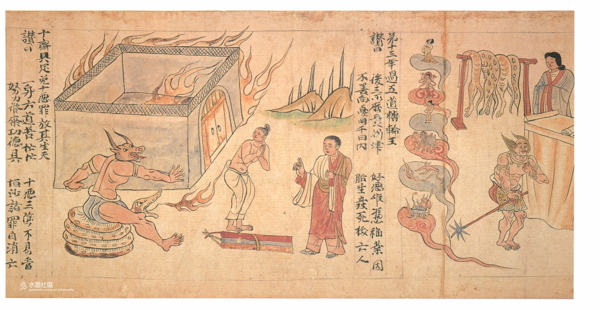 第十三年過五道轉輪王
讚曰 後三所歷是關津 好惡唯憑福業因
不善尚憂千日內 胎生產死拔亡人
十齋具足免十惡罪放其生天
讚曰 一身六道苦忙忙 十惡三塗不易當
努力修齋功德具 恒沙諸罪自消亡
水墨社區